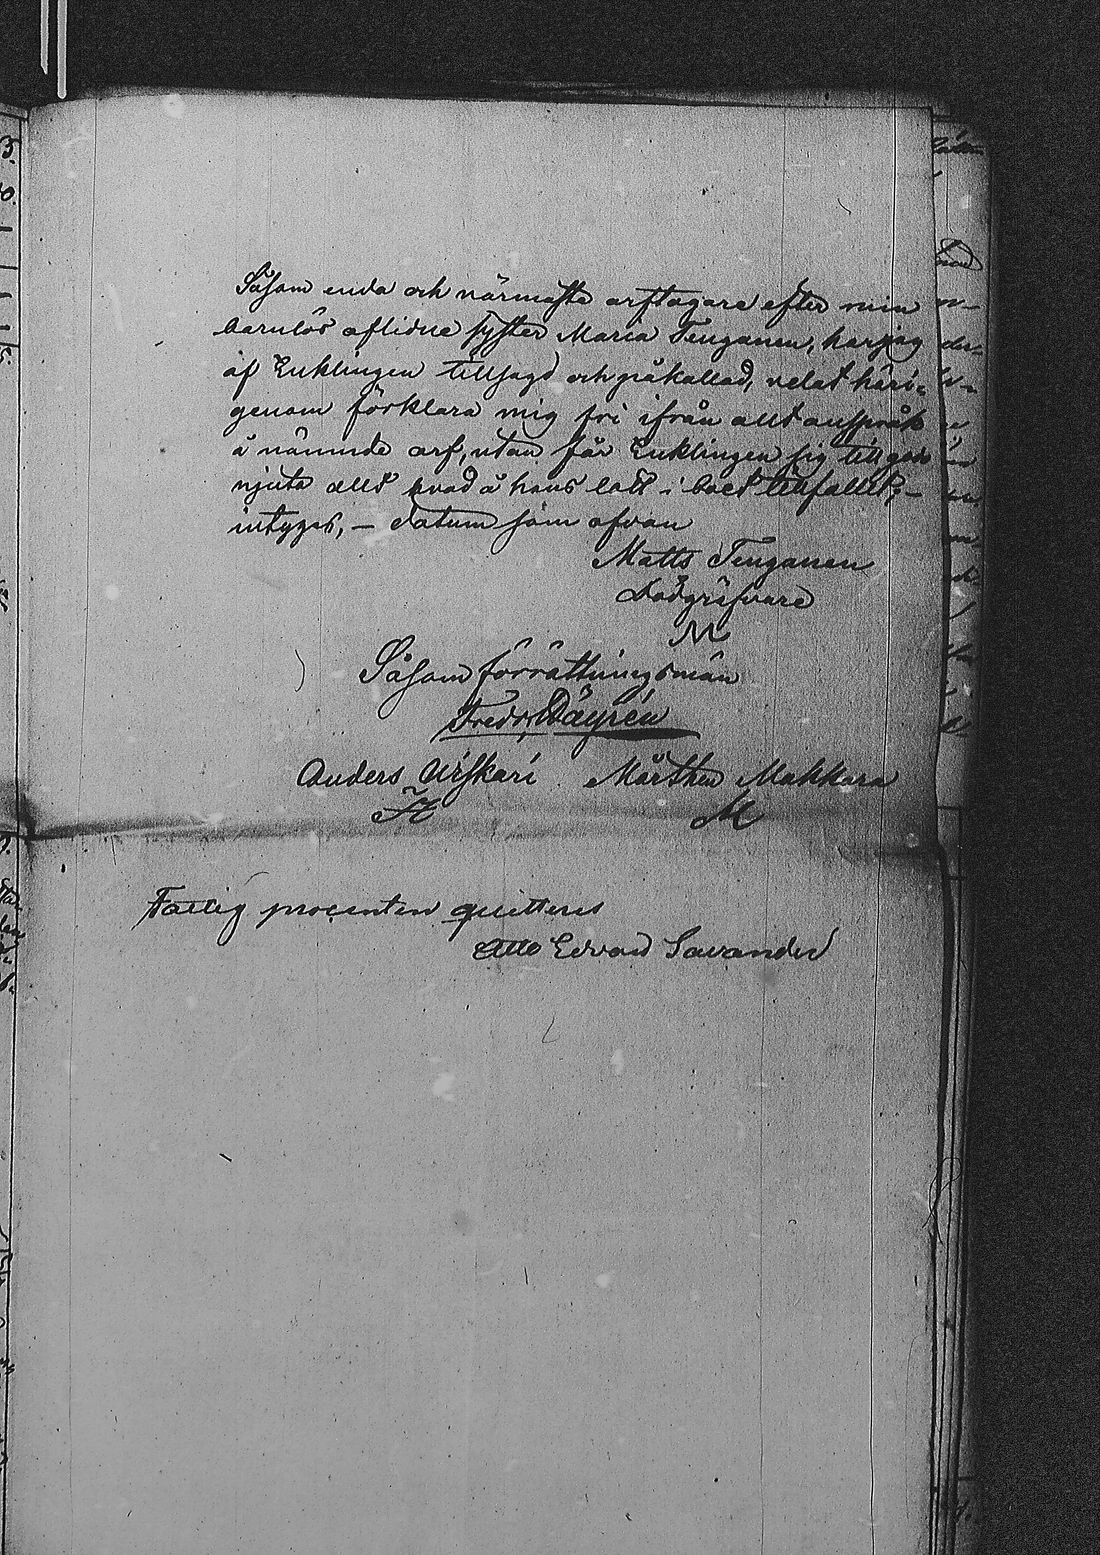 Såsom enda och närmaste arftagare efter min
barnlös aflidne syster Maria Tenganen, har jag
af Enklingen tillsagd och påkallad, velat häri-
genom förklara mig fri ifrån allt anspråk
å nämnde arf, utan får Enklingen sig till godo
njuta allt hvad å hans lott i boet tillfallit,-
intyges, - datum som ofvan
Matts Tenganen
M
Såsom förrättningsmän
Fredr. Dägrén
Anders Urskari Mårthen Makkara
M
Fattig procenten quitteres
Otto Edvard Savander